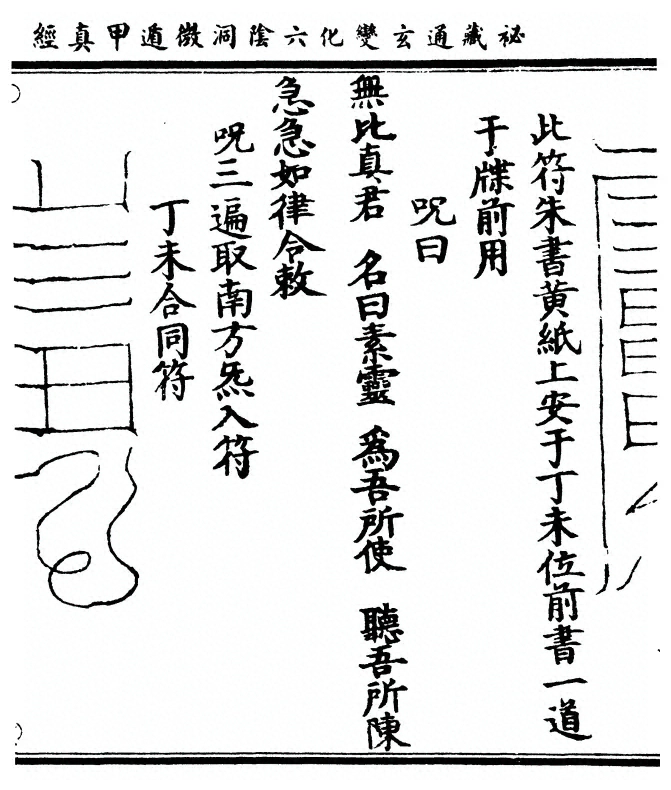 祕藏通玄變化六陰洞微遁甲真經
此符朱書黄紙上安于丁未位前書一道
于牒前用
呪曰
無比真君 名曰素靈 爲吾所使 聽吾所陳
急急如律令敕
呪三遍取南方炁入符
丁未合同符